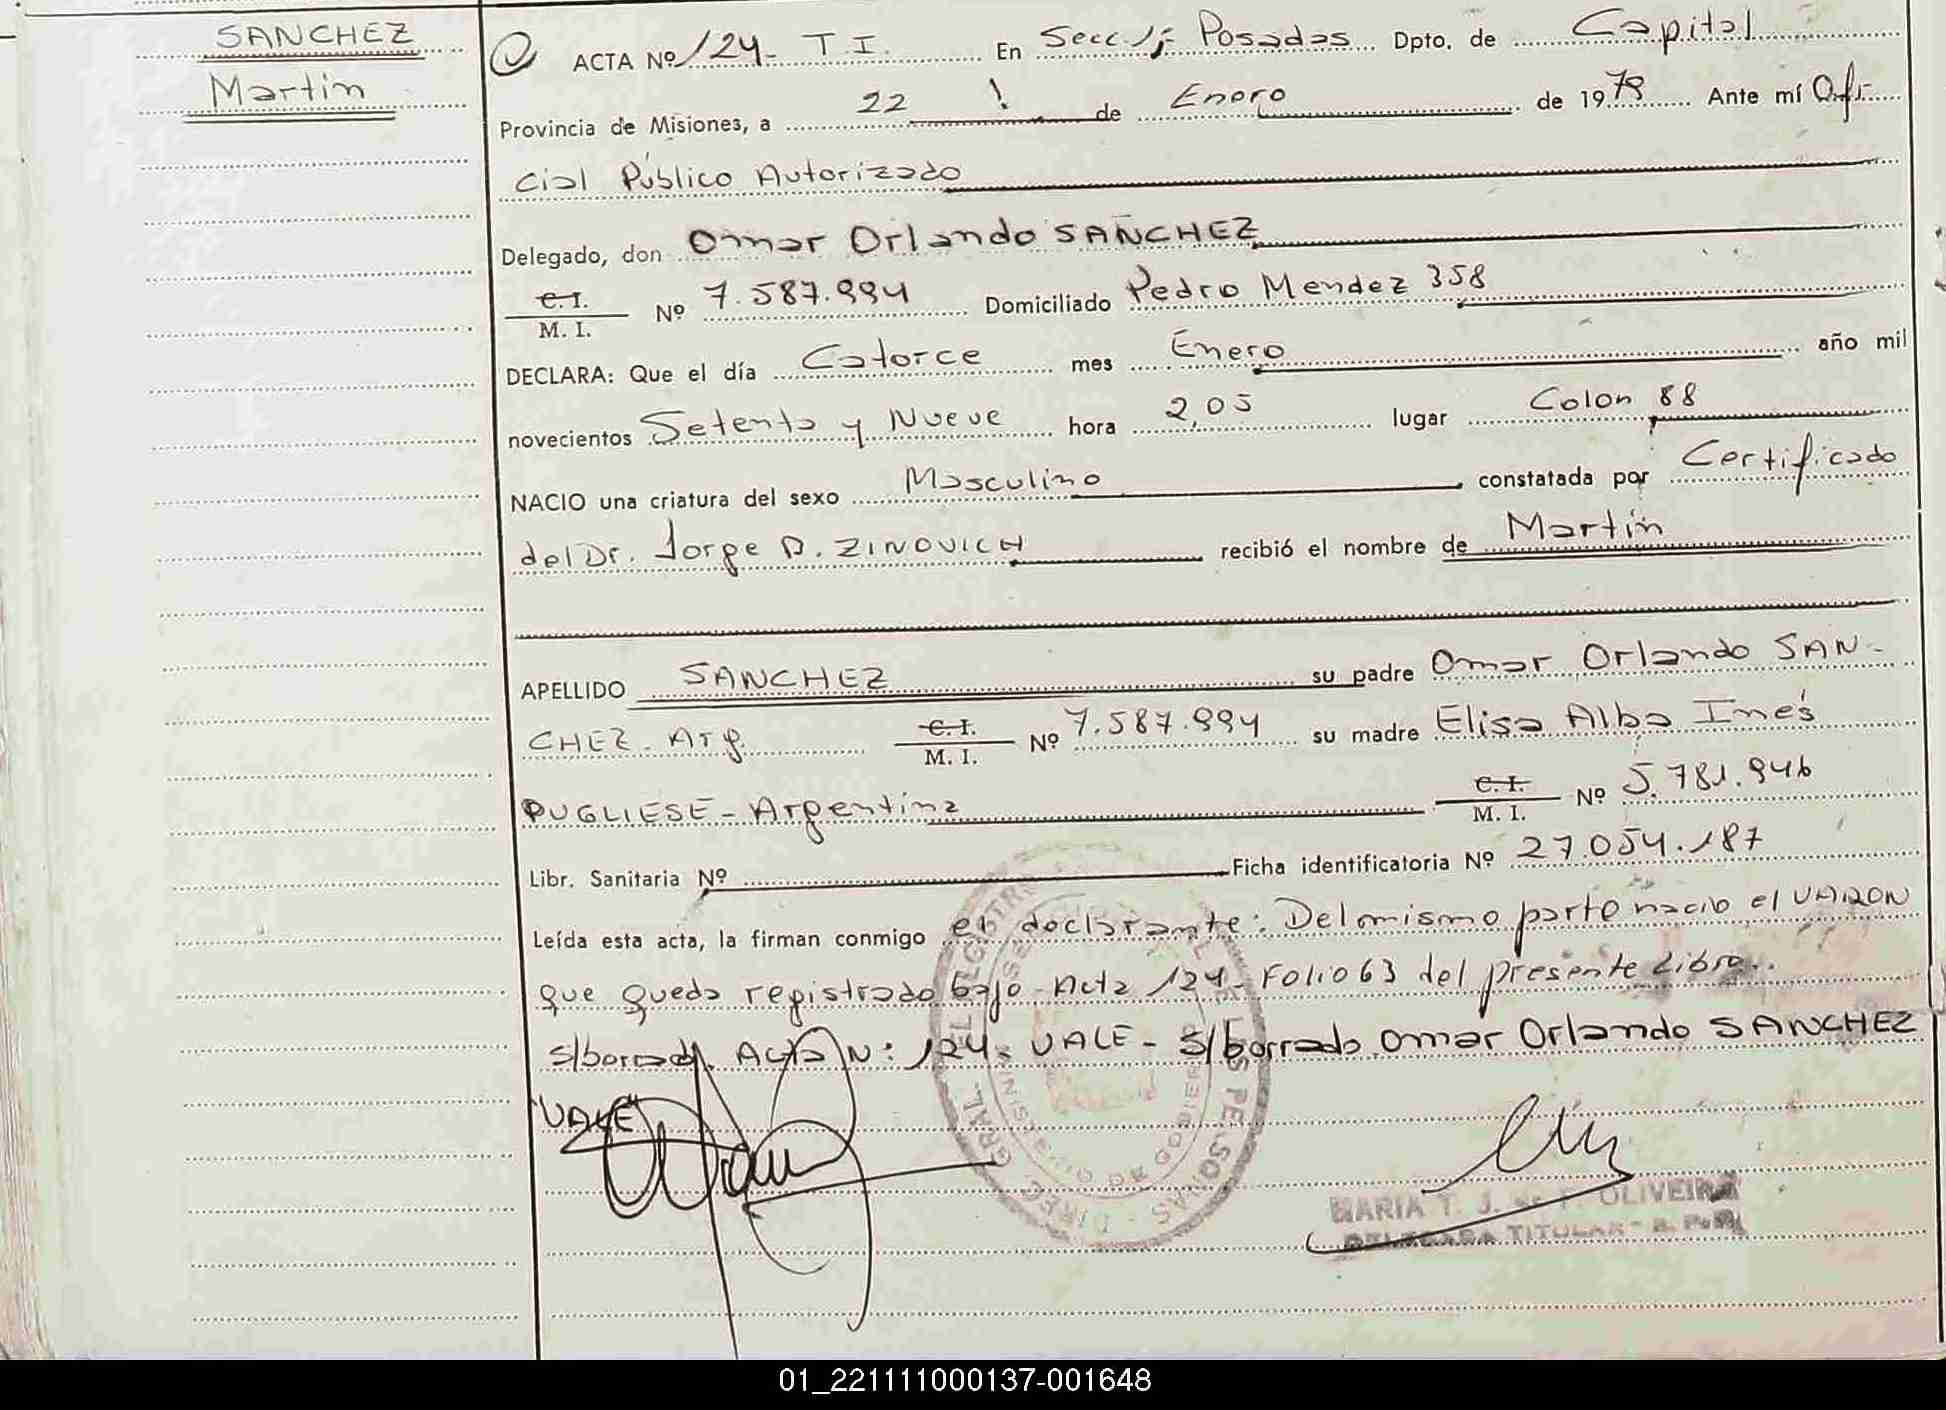 SANCHEZ
Martín
ACTA Nº 124- T.I. En Secc. 1ª Posadas Dpto. de Capital
Provincia de Misiones, a 22 de Enero de 1979 Ante mí Ofi-
cial Público Autorizado
Delegado, don Omar Orlando SANCHEZ
C. I.
M. I. Nº 7.587.994 Domiciliado Pedro Mendez 358
DECLARA: Que el día Catorce mes Enero año mil
novecientos Setenta y Nueve hora 2,05 lugar Colon 88
NACIO una criatura del sexo Masculino constatada por Certificado
del Dr. Jorge D. ZINOVICH recibió el nombre de Martín
APELLIDO SANCHEZ su padre Omar Orlando SAN-
CHEZ - Arg. C. I. M. I. Nº 7.587.994 su madre Elisa Alba Inés
PUGLIESE - Argentina C. I. M. I. Nº 5.781.946
Libr. Sanitaria Nº Ficha identificatoria Nº 27.054.187
Leída esta acta, la firman conmigo el declarante: Del mismo parto nacio el VARON
que queda registrado bajo Acta 124- Folio 63 del presente Libro..
s/borrado, Acta N: 124. VALE - S/borrado Omar Orlando SANCHEZ
"VALE"
DIREC. GRAL. DEL REGISTRO DE LAS PERSONAS
MINISTERIO DE GOBIERNO
MARIA T. J. de F. OLIVEIRA
DELEGADA TITULAR - R. P.
01_221111000137-001648